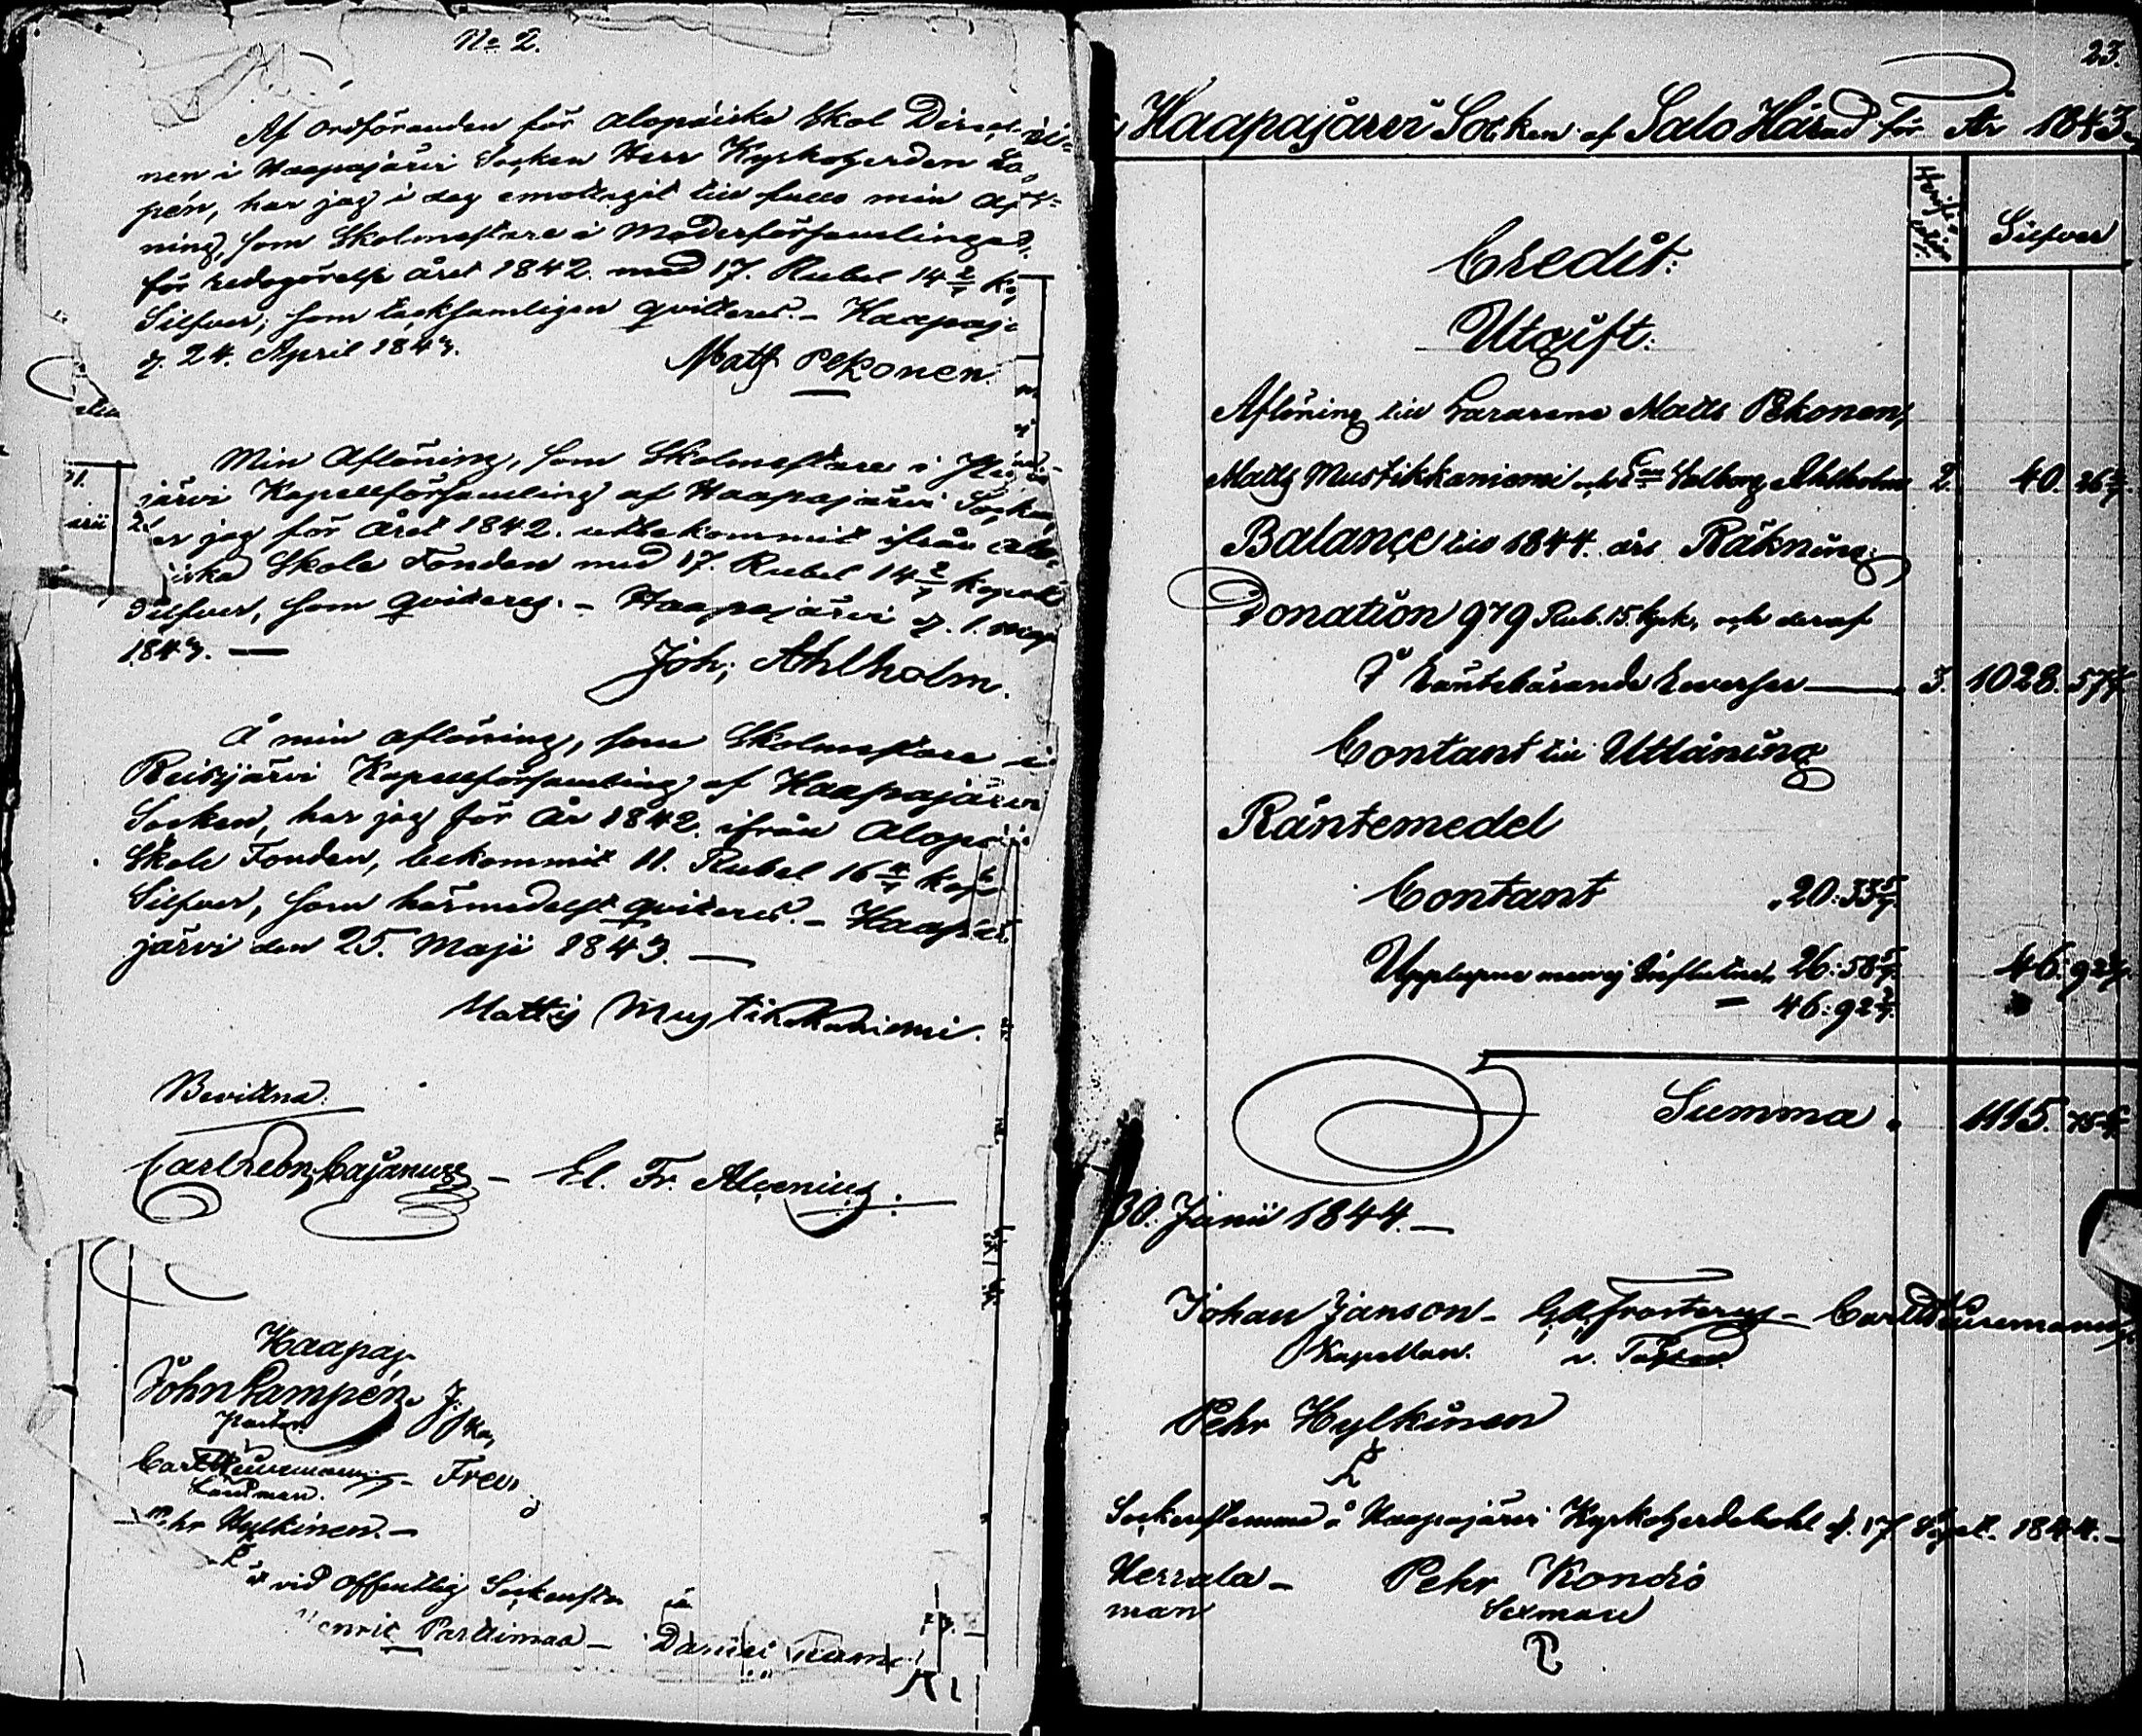 No 2.
Af Ordföranden för Alopæiska Skol Direct
nen i Haapajärvi Socken Herr Kyrkoherden La
pén, har jag i dag emottagit till fullo min Af
ning, som Skolmästare i Moderförsamlingen,
för redogörelse året 1842. med 17. Rubel 14 2/7 k
Silfver; som tacksamligen qvitteras. - Haapaj
d. 24. April 1843.
Matts Pekonen.
Min Aflöning, som Skolmästare i
järvi Kapellförsamling af Haapajärvi Socken,
er jag för året 1842. utbekommit ifrån Alo
iska Skole Fonden med 17. Rubel 14 2/7 kopek
Silfver, som qvitteras. - Haapajärvi d. 1.
1843. —
Joh; Ahlholm.
Å min aflöning, som Skolmästare i
Reisjärvi Kapellförsamling af Haapajärvi
Socken, har jag för År 1842. ifrån Alopæi
Skole Fonden, bekommit 11. Rubel 16 4/7 kop
Silfver, som härmedelst qvitteras. - Haapa
järvi den 25. Maji 1843. —
Matts Mustikkaniemi.
Bevittna:
Carl Cajanus - El. Fr. Alcenius.
Haapaj
John Lampén. J:
Pastor.
Carl - Fred
Länsman.
Pehr Hylkinen. —
vid offentlig Sockenstä
Henric Partimaa — Daniel
23.
Haapajärvi Socken af Salo Härad för År 1843.
Silfver
Credit:
Utgift:
Aflöning till Lärarene Matts Pekonen,
Matts Mustikkaniemi och Ahlholm 2. 40. 26 2/7
Balançe till 1844. års Räkning;
Donation 979 Rub. 15. kpk, och deraf
i räntebärande Reverser — 3. 1028. 57 1/7
Contant till Utlåning
Räntemedel
Contant 20:33 5/7.
Upplupne men ej influtne 26:58 5/7. 46. 92 3/7.
— 46:92 3/7.
Summa . 1115. 75 6/7
30. Junii 1844. —
Johan Janson - G. A. Frosterus - Carl
Kapellan. v. Pastor
Pehr Hylkinen
Sockenstämma i Haapajärvi Kyrkoherdebohl d. 17 Sept. 1844. —
Herrala — Pehr Kondiö
man Sexman